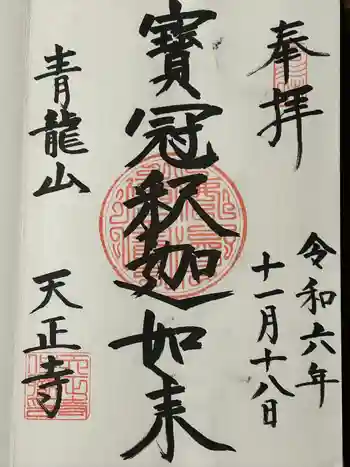 奉拝
令和六年
十一月十八日
寳冠釈迦如来
青龍山
天正寺